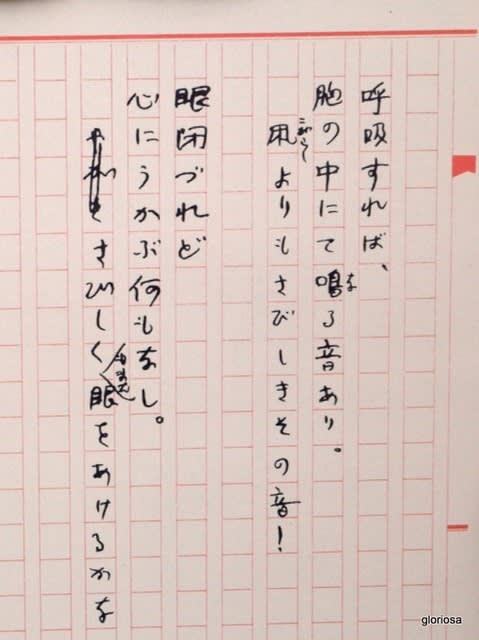 呼吸すれば、
胸の中にて鳴る音あり。
な
凩よりもさびしきその音!
こがらし
眼閉づれど
心にうかぶ何もなし。
さびしくもまた眼をあけるかな
gloriosa